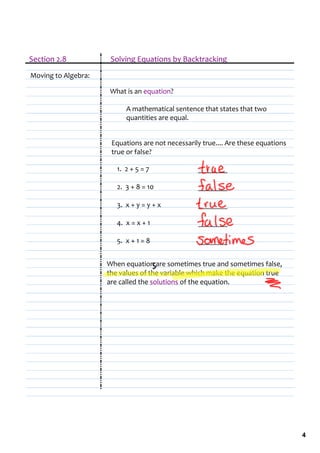 Section 2.8 Solving Equations by Backtracking
Moving to Algebra:
What is an equation?
A mathematical sentence that states that two
quantities are equal.
Equations are not necessarily true.... Are these equations
true or false?
1. 2 + 5 = 7 true
2. 3 + 8 = 10 false
3. x + y = y + x true
4. x = x + 1 false
5. x + 1 = 8 sometimes
When equations are sometimes true and sometimes false,
the values of the variable which make the equation true
are called the solutions of the equation.
4